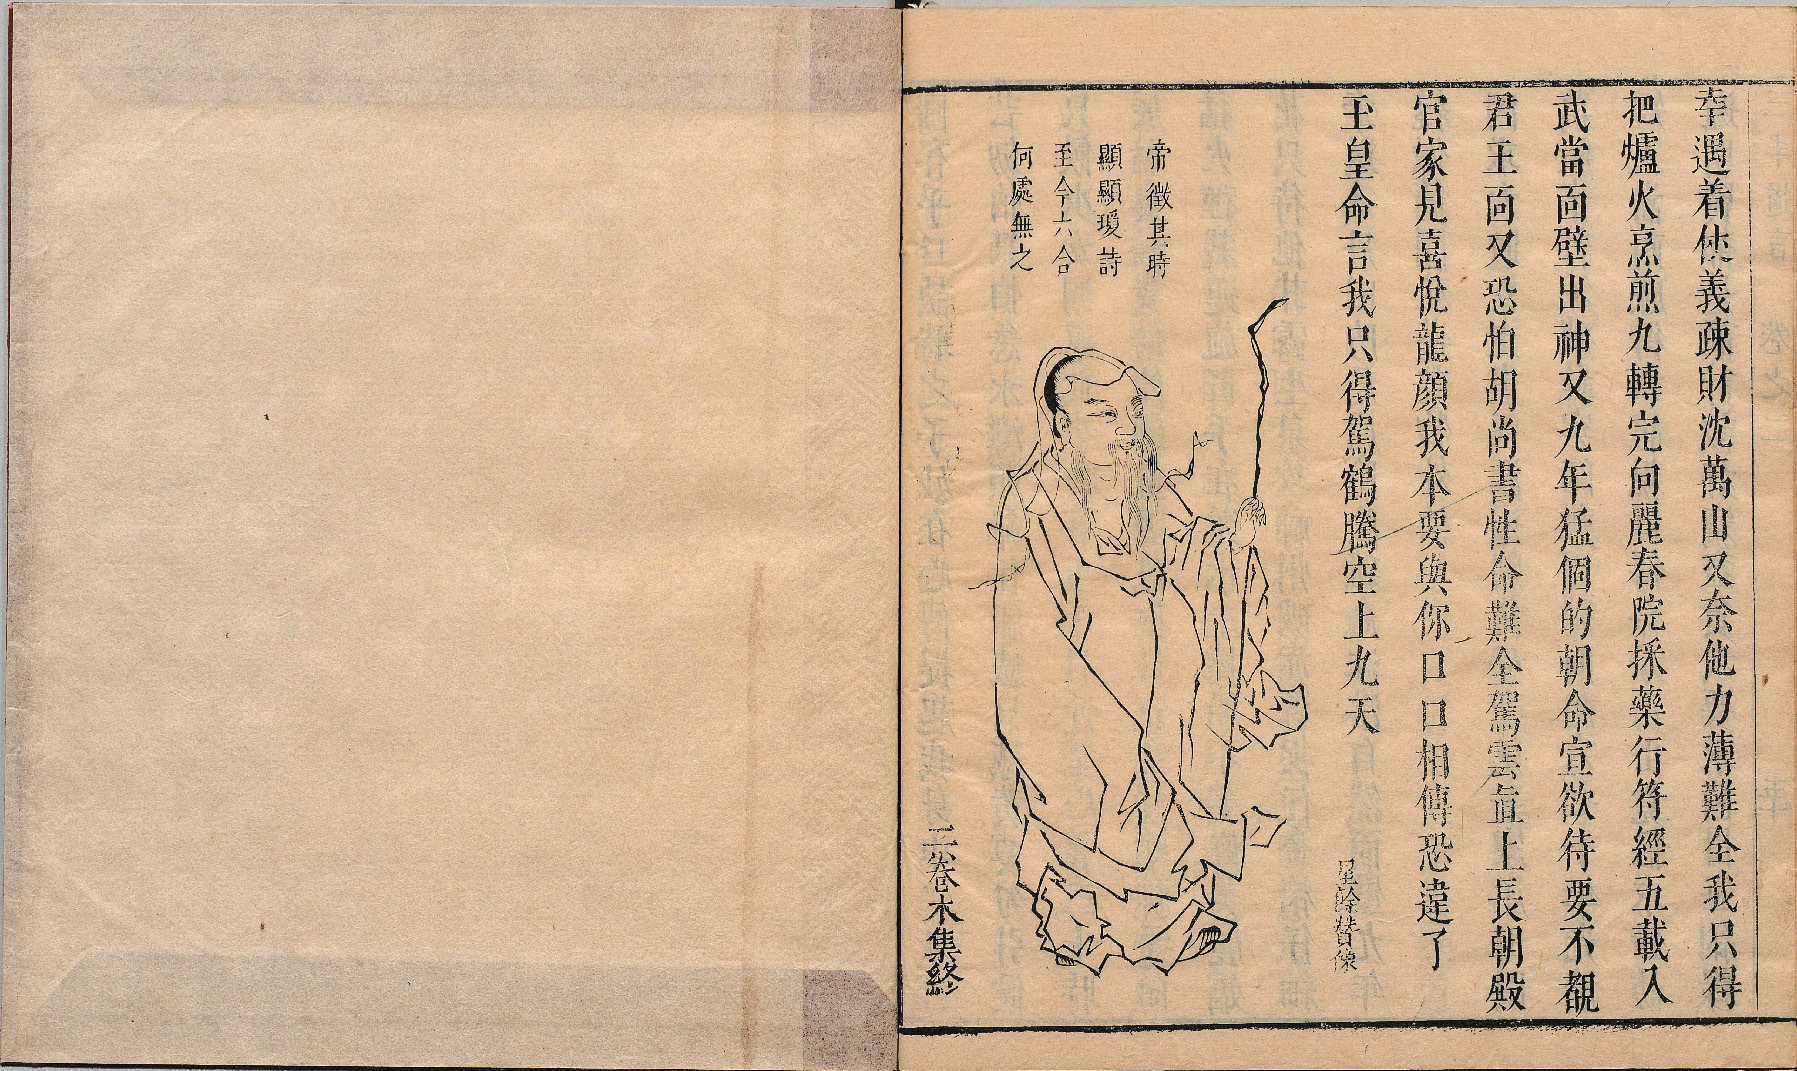 幸遇着俠義疎財沈萬山又奈他力薄難全我只得
把爐火烹煎九轉完向麗春院採藥行符經五載入
武當面壁出神又九年猛個的朝命宣欲待要不覩
君王面又恐怕胡尚書性命難全駕雲直上長朝殿
官家見喜悅龍顏我本要與你口口相傳恐違了
玉皇命言我只得駕鶴騰空上九天
帝徵其時
顯顯瑷詩
至今六合
何處無之
星餘贊像
二卷木集終